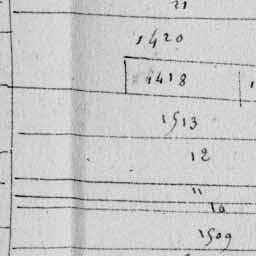 21
1420
1418
1513
12
11
10
1509